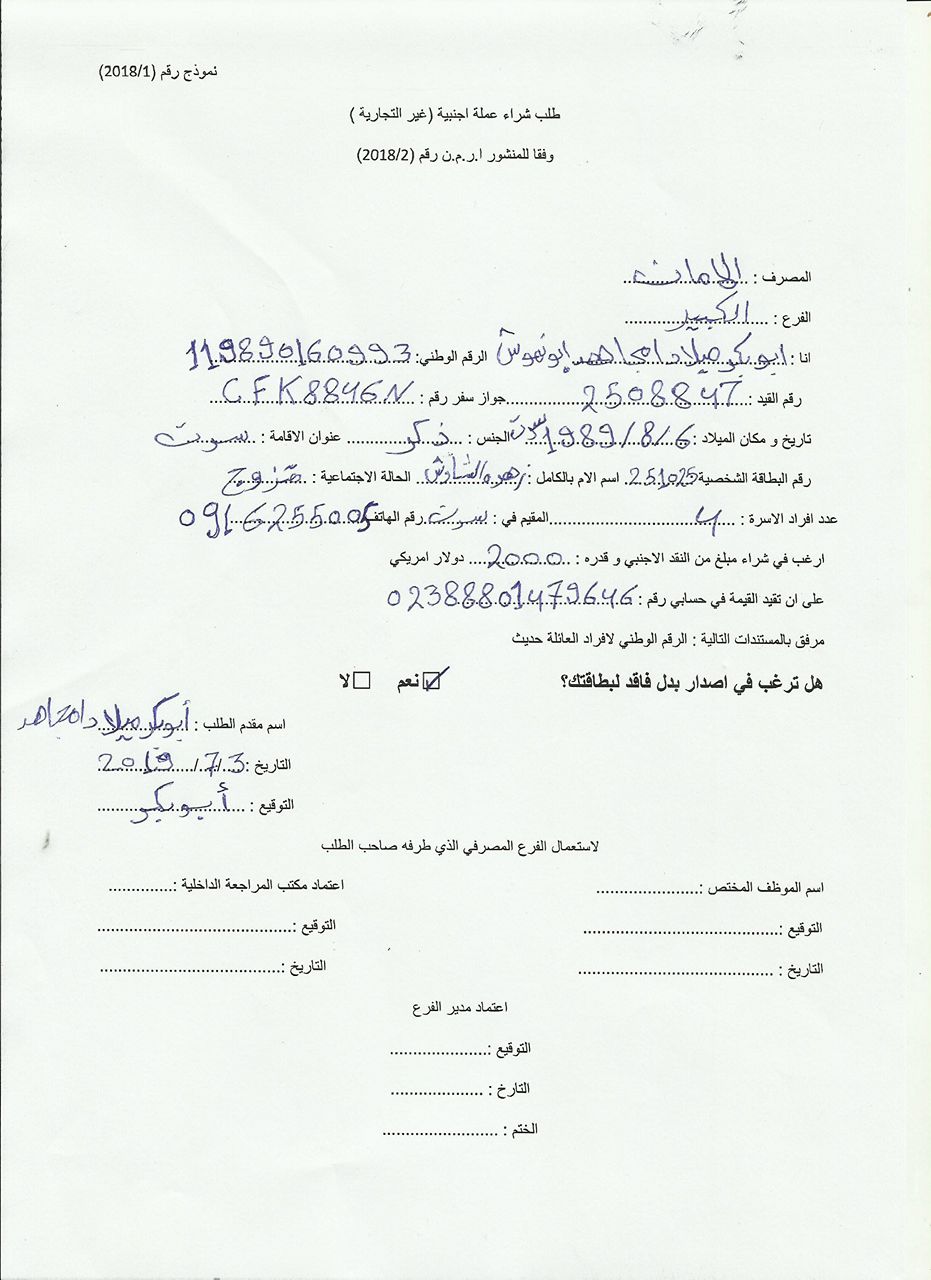 نموذج رقم (2018/1)
طلب شراء عملة اجنبية (غير التجارية )
وفقا للمنشور ا.ر.م.ن رقم (2018/2)
المصرف : الامان
الفرع : الكبير
انا : ابوبكر ميلاد امجاهد ابونهوش الرقم الوطني: 119890160993
رقم القيد : 2508847 جواز سفر رقم : CFK8846N
تاريخ و مكان الميلاد : 1989/8/6 سرت الجنس : ذكر عنوان الاقامة : سرت
رقم البطاقة الشخصية 251025 اسم الام بالكامل : زهره الشاوش الحالة الاجتماعية : متزوج
عدد افراد الاسرة : 4 المقيم في : سرت رقم الهاتف 0916255005
ارغب في شراء مبلغ من النقد الاجنبي و قدره : 2000 دولار امريكي
على ان تقيد القيمة في حسابي رقم : 02388801479646
مرفق بالمستندات التالية : الرقم الوطني لافراد العائلة حديث
هل ترغب في اصدار بدل فاقد لبطاقتك؟ نعم لا
اسم مقدم الطلب : أبوبكر ميلاد امجاهد
التاريخ : 3/7/2019
التوقيع : أبوبكر
لاستعمال الفرع المصرفي الذي طرفه صاحب الطلب
اسم الموظف المختص :...................... اعتماد مكتب المراجعة الداخلية :..............
التوقيع :.......................................... التوقيع :..........................................
التاريخ : .......................................... التاريخ :.......................................
اعتماد مدير الفرع
التوقيع :.....................
التارخ : ....................
الختم : .........................